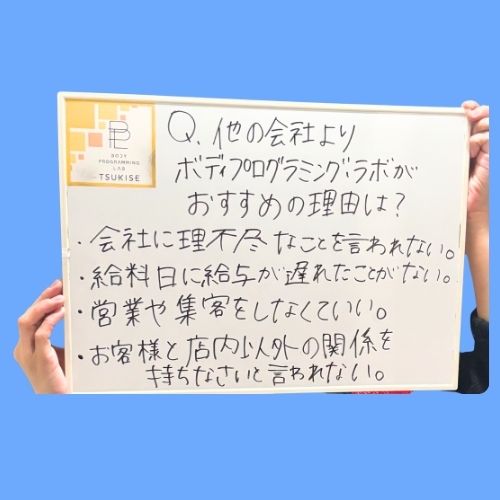 BPL
BODY
PROGRAMMING
LAB
TSUKISE
Q. 他の会社より
ボディプログラミングラボが
おすすめの理由は？
・会社に理不尽なことを言われない。
・給料日に給与が遅れたことがない。
・営業や集客をしなくていい。
・お客様と店内以外の関係を
持ちなさいと言われない。